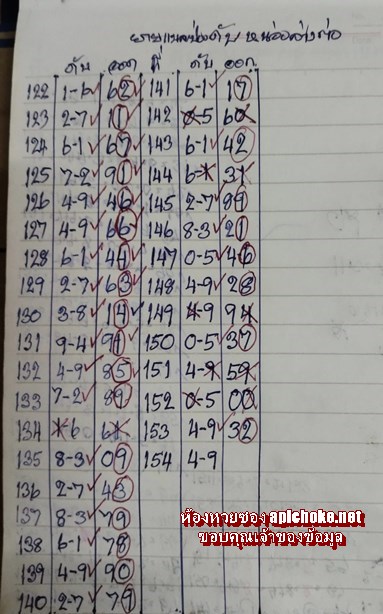 ดับ ออก ที่ ดับ ออก
122 1-6 62 141 6-1 17
123 2-7 11 142 0-5 60
124 6-1 67 143 6-1 42
125 7-2 91 144 6-1 31
126 4-9 46 145 2-7 99
127 4-9 66 146 8-3 21
128 6-1 44 147 0-5 46
129 2-7 63 148 4-9 28
130 3-8 14 149 4-9 94
131 9-4 91 150 0-5 37
132 4-9 85 151 4-9 59
133 7-2 89 152 0-5 00
134 1-6 61 153 4-9 32
135 8-3 09 154 4-9
136 2-7 43
137 8-3 79
138 6-1 78
139 4-9 90
140 2-7 79
ห้องหวยซอง apichoke.net
ขอบคุณเจ้าของข้อมูล